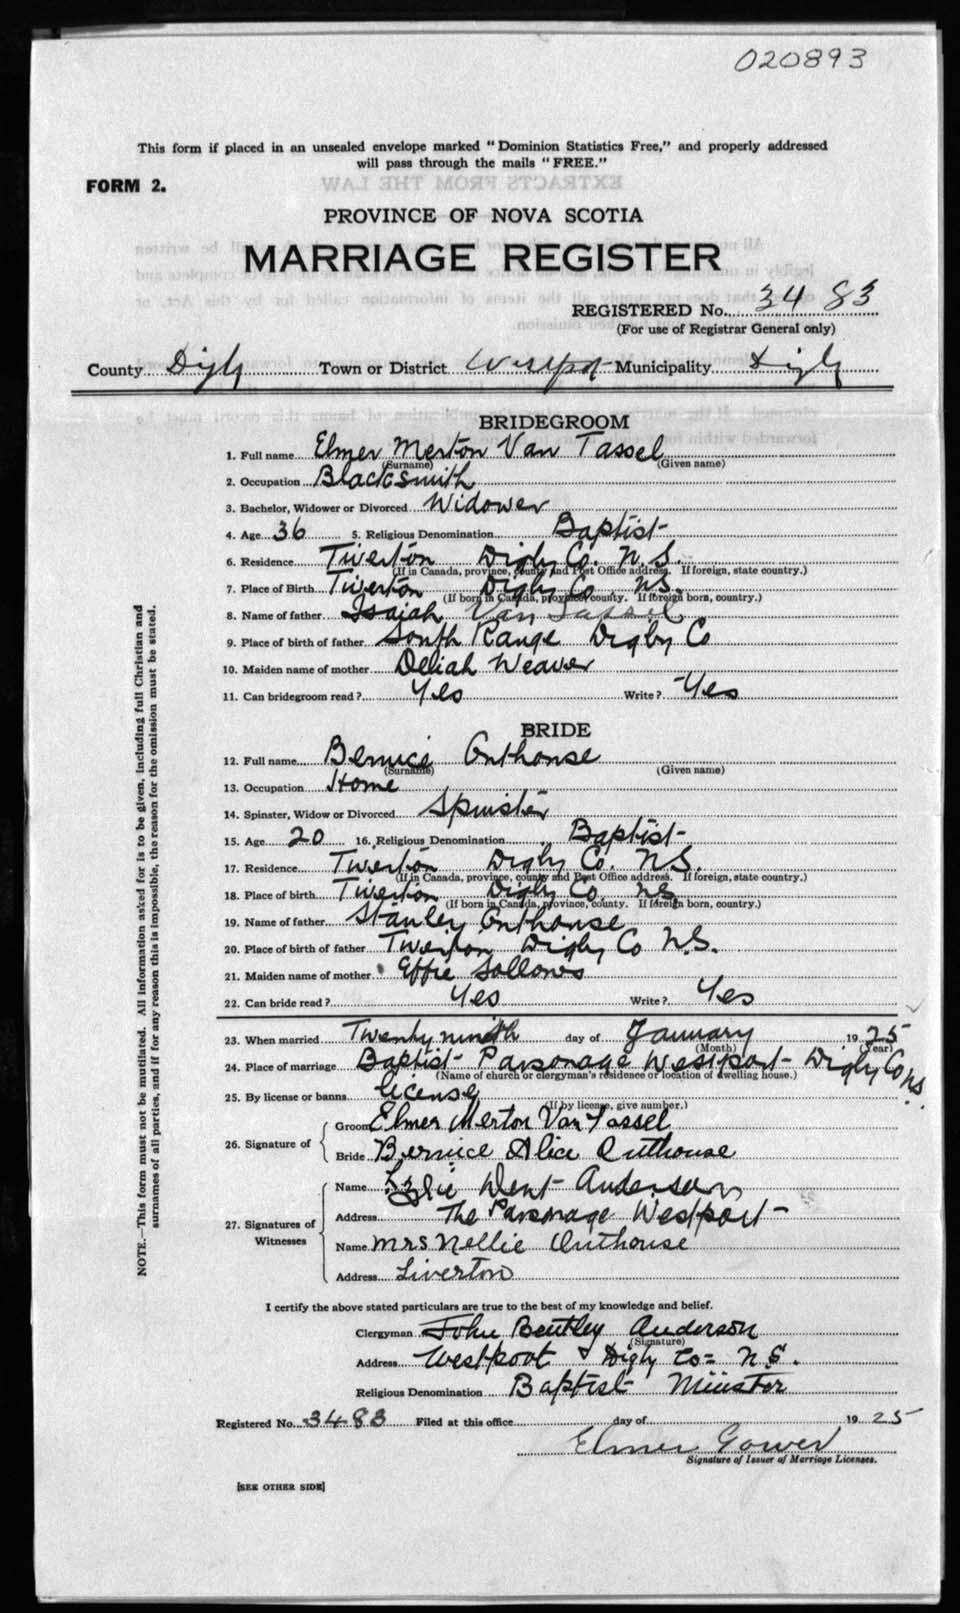 020893
This form if placed in an unsealed envelope marked "Dominion Statistics Free," and properly addressed
will pass through the mails "FREE."
FORM 2.
PROVINCE OF NOVA SCOTIA
MARRIAGE REGISTER
REGISTERED No. 3483
(For use of Registrar General only)
County Digby Town or District Westport Municipality Digby
BRIDEGROOM
1. Full name Elmer Merton Van Tassel
(Surname) (Given name)
2. Occupation Blacksmith
3. Bachelor, Widower or Divorced Widower
4. Age 36 5. Religious Denomination Baptist
6. Residence Tiverton Digby Co. N.S.
(If in Canada, province, county and Post Office address. If foreign, state country.)
7. Place of Birth Tiverton Digby Co NS.
(If born in Canada, province, county. If foreign born, country.)
8. Name of father Isaiah Van Tassel
9. Place of birth of father South Range Digby Co
10. Maiden name of mother Deliah Weaver
11. Can bridegroom read? Yes Write? Yes
BRIDE
12. Full name Bernice Outhouse
(Surname) (Given name)
13. Occupation Home
14. Spinster, Widow or Divorced Spinster
15. Age 20 16. Religious Denomination Baptist
17. Residence Tiverton Digby Co. N.S.
(If in Canada, province, county and Post Office address. If foreign, state country.)
18. Place of birth Tiverton Digby Co. NS
(If born in Canada, province, county. If foreign born, country.)
19. Name of father Stanley Outhouse
20. Place of birth of father Tiverton Digby Co N.S.
21. Maiden name of mother Effie Sollows
22. Can bride read? Yes Write? Yes
23. When married Twenty ninth day of January 1925
(Month) (Year)
24. Place of marriage Baptist Parsonage Westport Digby Co NS.
(Name of church or clergyman's residence or location of dwelling house.)
25. By license or banns license
(If by license, give number.)
26. Signature of
Groom Elmer Merton Van Tassel
Bride Bernice Alice Outhouse
27. Signatures of Witnesses
Name Lizzie Dent Anderson
Address The Parsonage Westport
Name Mrs Nellie Outhouse
Address Tiverton
I certify the above stated particulars are true to the best of my knowledge and belief.
Clergyman John Bentley Anderson
(Signature)
Address Westport Digby Co= N.S.
Religious Denomination Baptist Minister
Registered No. 3483 Filed at this office day of 1925
Elmer Gower
Signature of Issuer of Marriage Licenses.
[SEE OTHER SIDE]
NOTE.—This form must not be mutilated. All information asked for is to be given, including full Christian and
surnames of all parties, and if for any reason this is impossible, the reason for the omission must be stated.